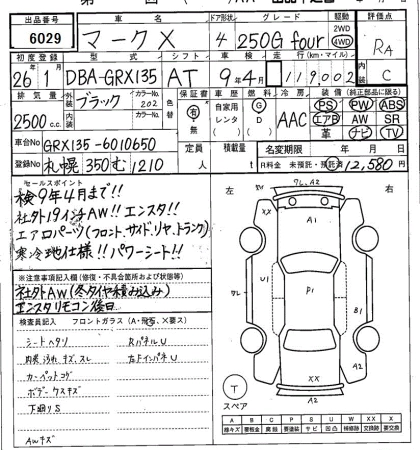 出品番号 車名 ドア形状 グレード 駆動 評価点
6029 マークX 4 250G four 2WD 4WD RA
初度登録 型式 シフト 車検 走行(km・マイル) 内装
26年1月 DBA-GRX135 AT 9年4月 119002 C
排気量 外装 ブラック カラーNo. 202 色替 保証書 車歴 燃料 冷房 装備(純正部品に限る)
2500c.c. 内装 カラーNo. 有 無 自家用 レンタ G D AAC PS PW ABS
エアB AW SR
革 ナビ TV
車台No GRX135-6010650 定員 人 積載量 t 名変期限 年 月 日
登録No 札幌 350 む 1210 R料金 未預託・預託済 12,580円
セールスポイント
検9年4月まで!!
社外19インチAW!! エンスタ!!
エアロパーツ(フロント、サイド、リヤ、トランク)
寒冷地仕様!! パワーシート!!
※注意事項記入欄(修復・不具合箇所および状態等)
社外AW(冬タイヤ積み込み)
エンスタリモコン後日
検査員記入 フロントガラス(A・飛石、X要ス)
シートヘタリ RパネルU
内装 汚れ キズ、スレ 右FインパネU
カーペットコゲ
ボデーケスキズ
下廻りS
AWキズ
左 右
ワレ、A2
XX
XX
A1
ワレ
U1
P1
B1
A2
XX
A2
A2
T
スペア
A B C P S U W XX X
線キズ 要板金 腐蝕 要塗装 サビ 凹凸 補修跡 交換跡 要交換